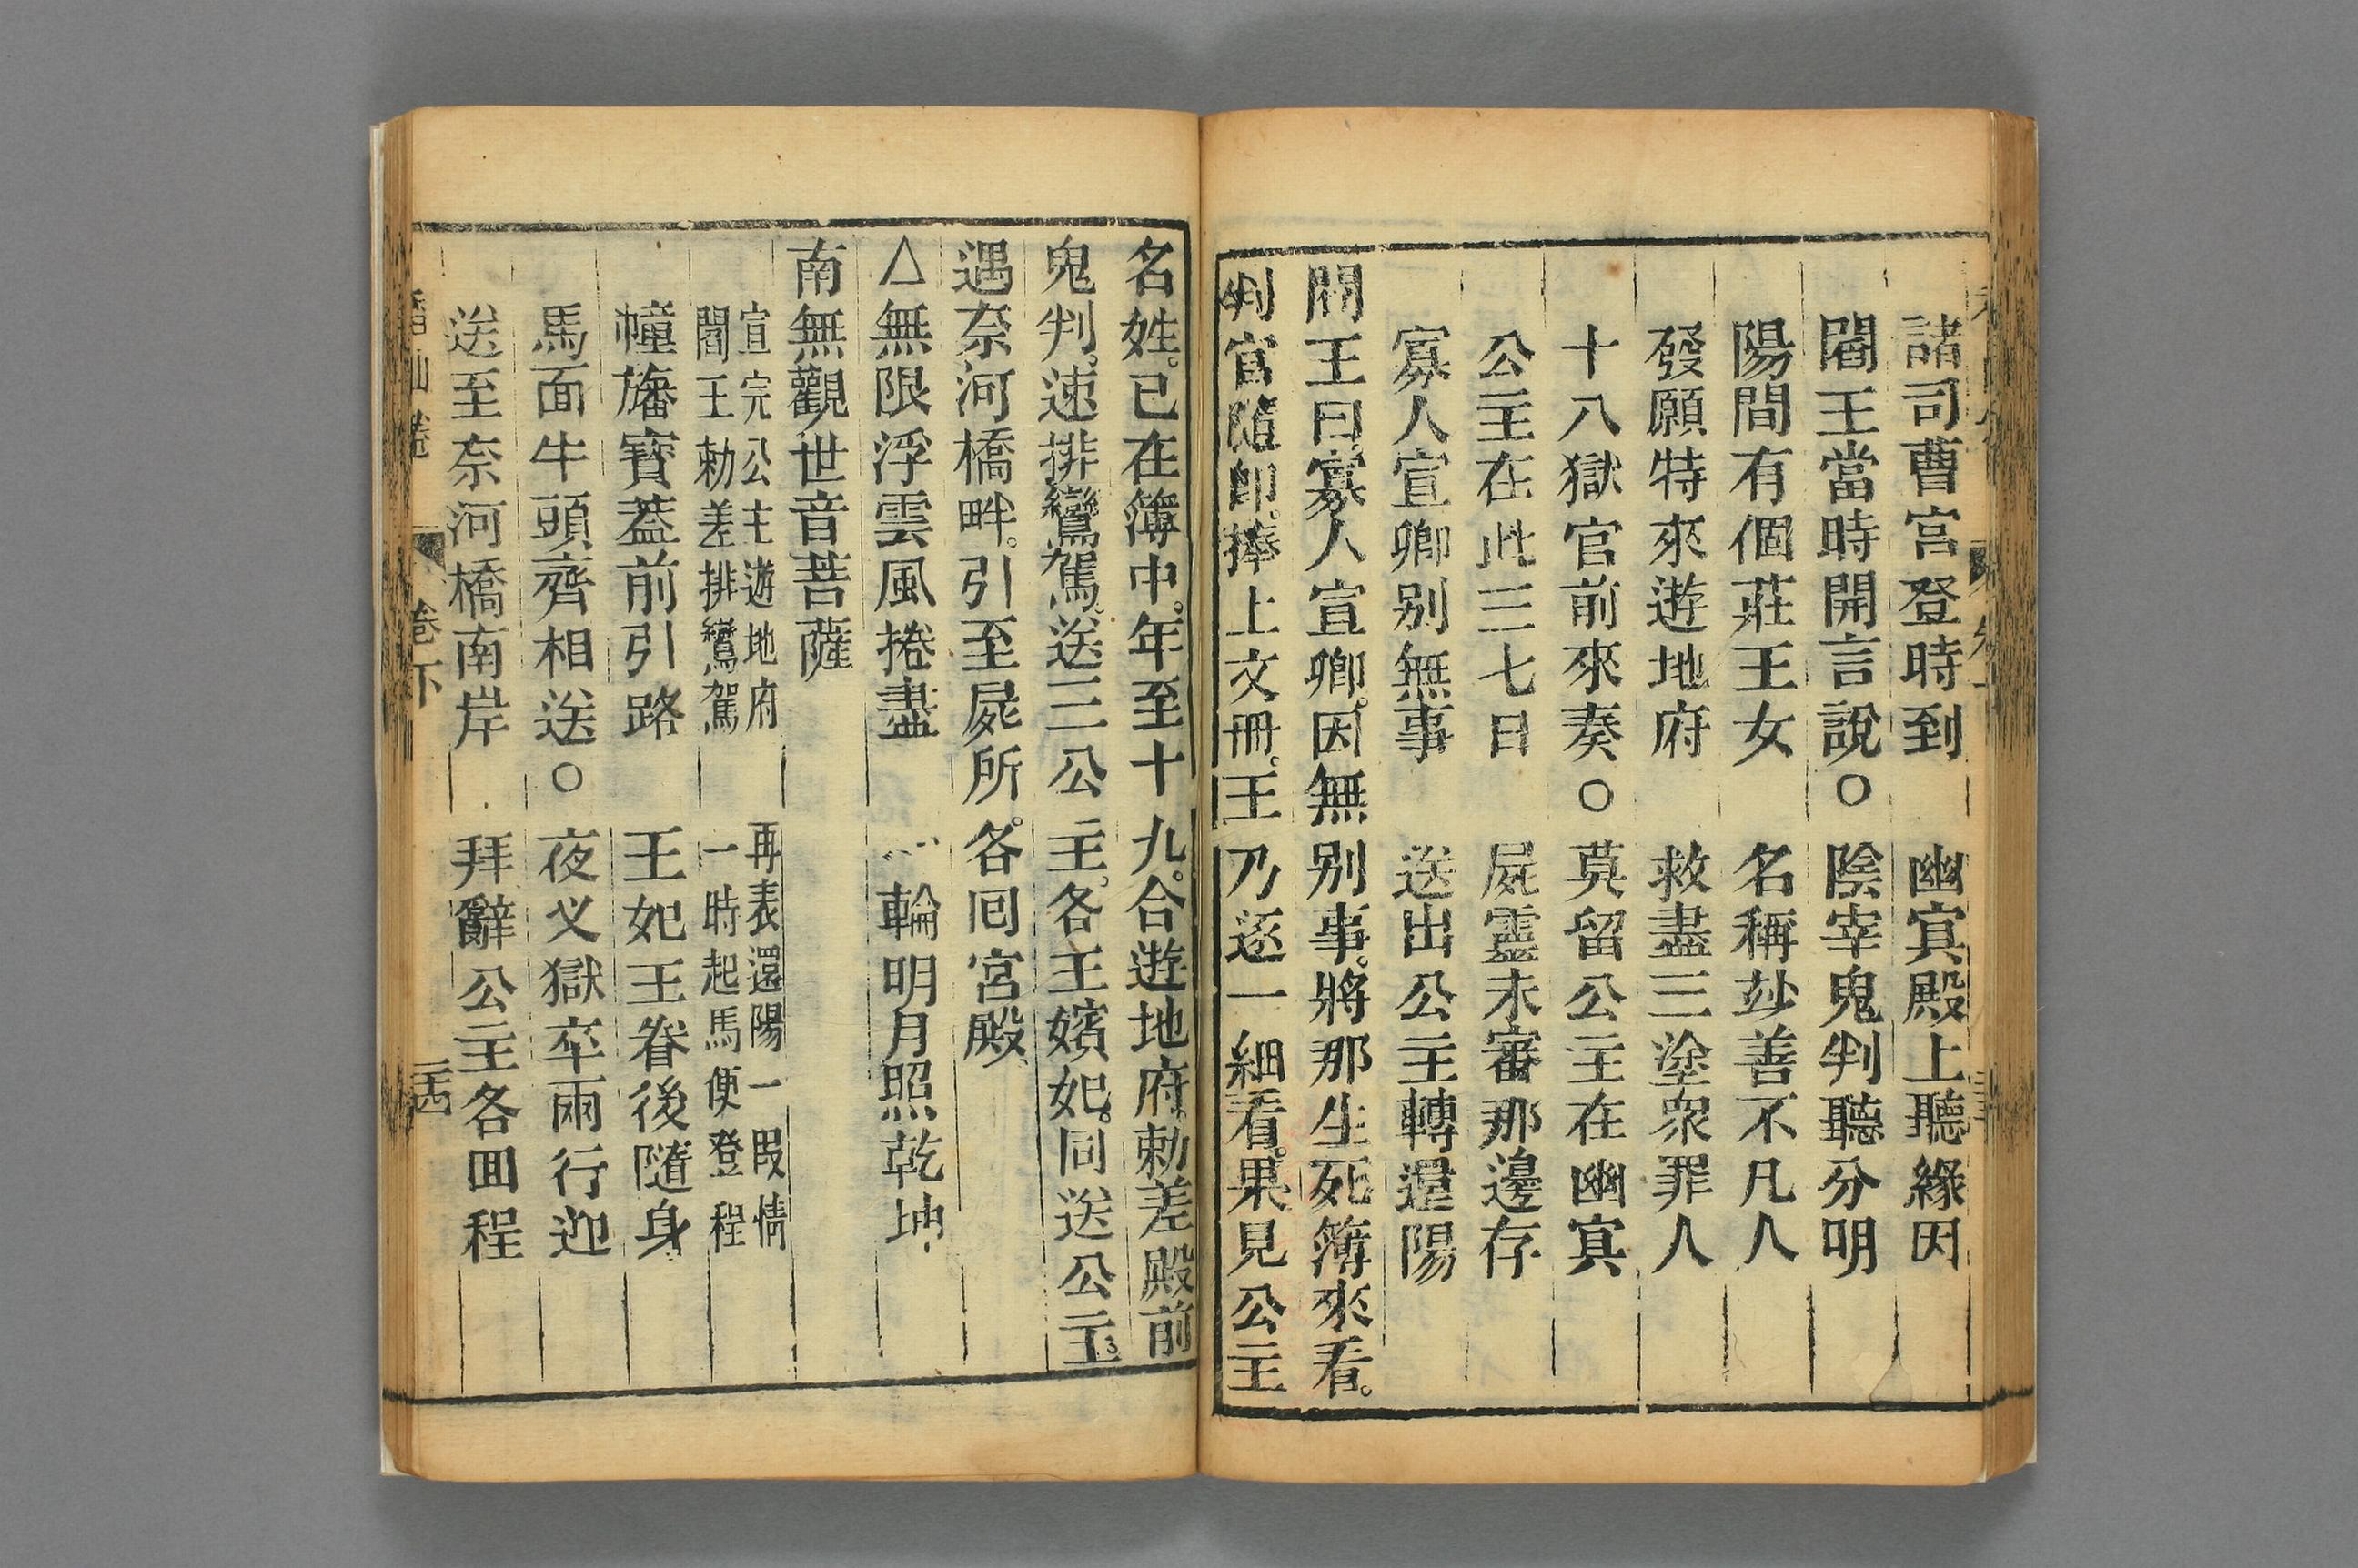 諸司曹宮登時到　幽冥殿上聽緣因
閻王當時開言說○陰宰鬼判聽分明
陽間有個莊王女　名稱玅善不凡人
發願特來遊地府　救盡三塗衆罪人
十八獄官前來奏○莫留公主在幽冥
公主在此三七日　屍靈未審那邊存
寡人宣卿别無事　送出公主轉還陽
閻王曰寡人宣卿。因無别事。將那生死簿來看。
判官隨即。捧上文冊。王乃逐一細看。果見公主
名姓。已在簿中。年至十九。合遊地府。勅差殿前
鬼判。速排鸞駕。送三公主。各主嬪妃。同送公主。
遇奈河橋畔。引至屍所。各囘宮殿
△無限浮雲風捲盡　一輪明月照乾坤
南無觀世音菩薩
宣完公主遊地府　再表還陽一叚情
閻王勅差排鸞駕　一時起馬便登程
幢旛寶葢前引路　王妃王眷後隨身
馬面牛頭齊相送○夜义獄卒兩行迎
送至奈河橋南岸　拜辭公主各囬程
香山卷　卷下　二十四